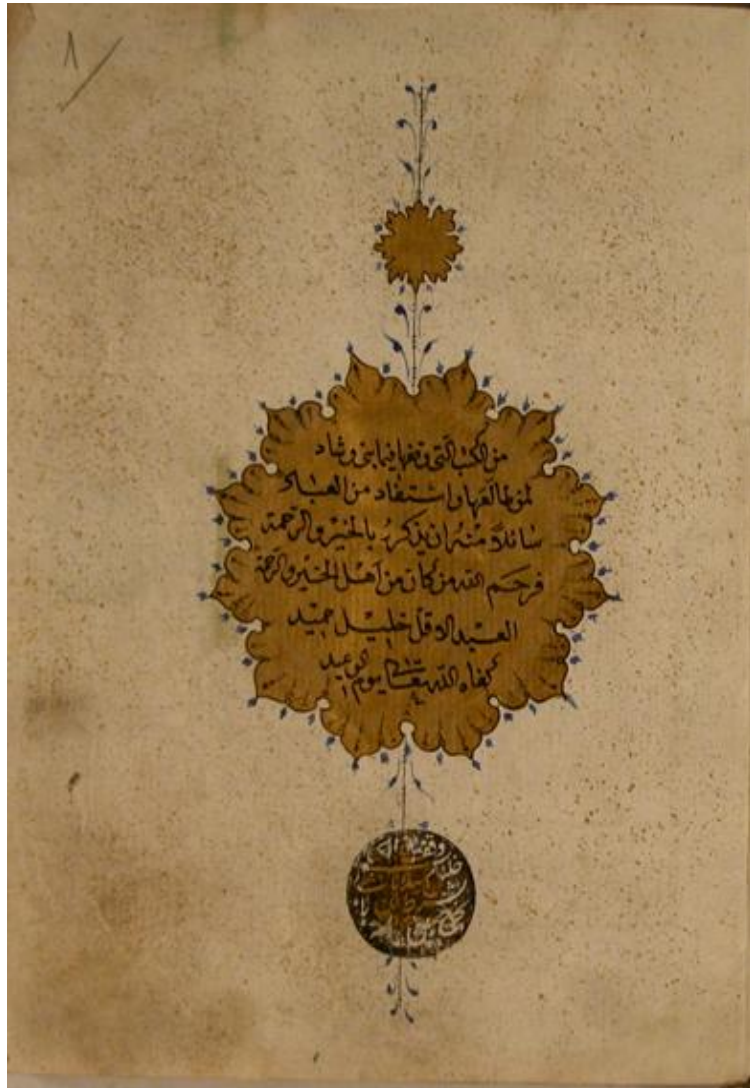 ٨
من الكتب التى وقفها فيما بنى وشاد
لمن طالعها واستفاد من العباد
سائلاً منه ان يذكره بالخير والرحمة
فرحم الله من كان من اهل الخير والرحمة
العبد الاقل خليل حميد
كفاه الله تعالى يوم الوعيد